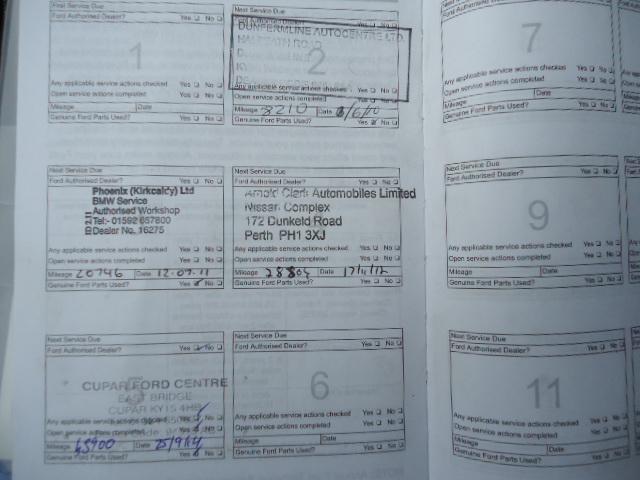 First Service Due
Ford Authorised Dealer? Yes No
1
Any applicable service actions checked Yes No
Open service actions completed Yes No
Mileage Date
Genuine Ford Parts Used? Yes No
Next Service Due
DUNFERMLINE AUTOCENTRE LTD
HALBEATH ROAD
2
Any applicable service actions checked Yes No
Open service actions completed Yes No
Mileage 3210 Date
Genuine Ford Parts Used? Yes No
7
Any applicable service actions checked
Open service actions completed
Mileage Date
Genuine Ford Parts Used? Yes No
Next Service Due
Ford Authorised Dealer? Yes No
Phoenix (Kirkcaldy) Ltd
BMW Service
Authorised Workshop
Tel:- 01592 657800
Dealer No. 16275
Any applicable service actions checked Yes No
Open service actions completed Yes No
Mileage 20746 Date 12.07.11
Genuine Ford Parts Used? Yes No
Next Service Due
Ford Authorised Dealer? Yes No
Arnold Clark Automobiles Limited
Nissan Complex
172 Dunkeld Road
Perth PH1 3XJ
Any applicable service actions checked Yes No
Open service actions completed Yes No
Mileage 28804 Date
Genuine Ford Parts Used? Yes No
Next Service Due
Ford Authorised Dealer? Yes No
9
Any applicable service actions checked Yes No
Open service actions completed Yes No
Mileage Date
Genuine Ford Parts Used? Yes No
Next Service Due
Ford Authorised Dealer? Yes No
5
CUPAR FORD CENTRE
EAST BRIDGE
CUPAR KY15 4HB
Any applicable service actions checked Yes No
Open service actions completed Yes No
Mileage Date 25/9/14
Genuine Ford Parts Used? Yes No
Next Service Due
Ford Authorised Dealer? Yes No
6
Any applicable service actions checked Yes No
Open service actions completed Yes No
Mileage Date
Genuine Ford Parts Used? Yes No
Next Service Due
Ford Authorised Dealer? Yes No
11
Any applicable service actions checked Yes No
Open service actions completed Yes No
Mileage Date
Genuine Ford Parts Used? Yes No